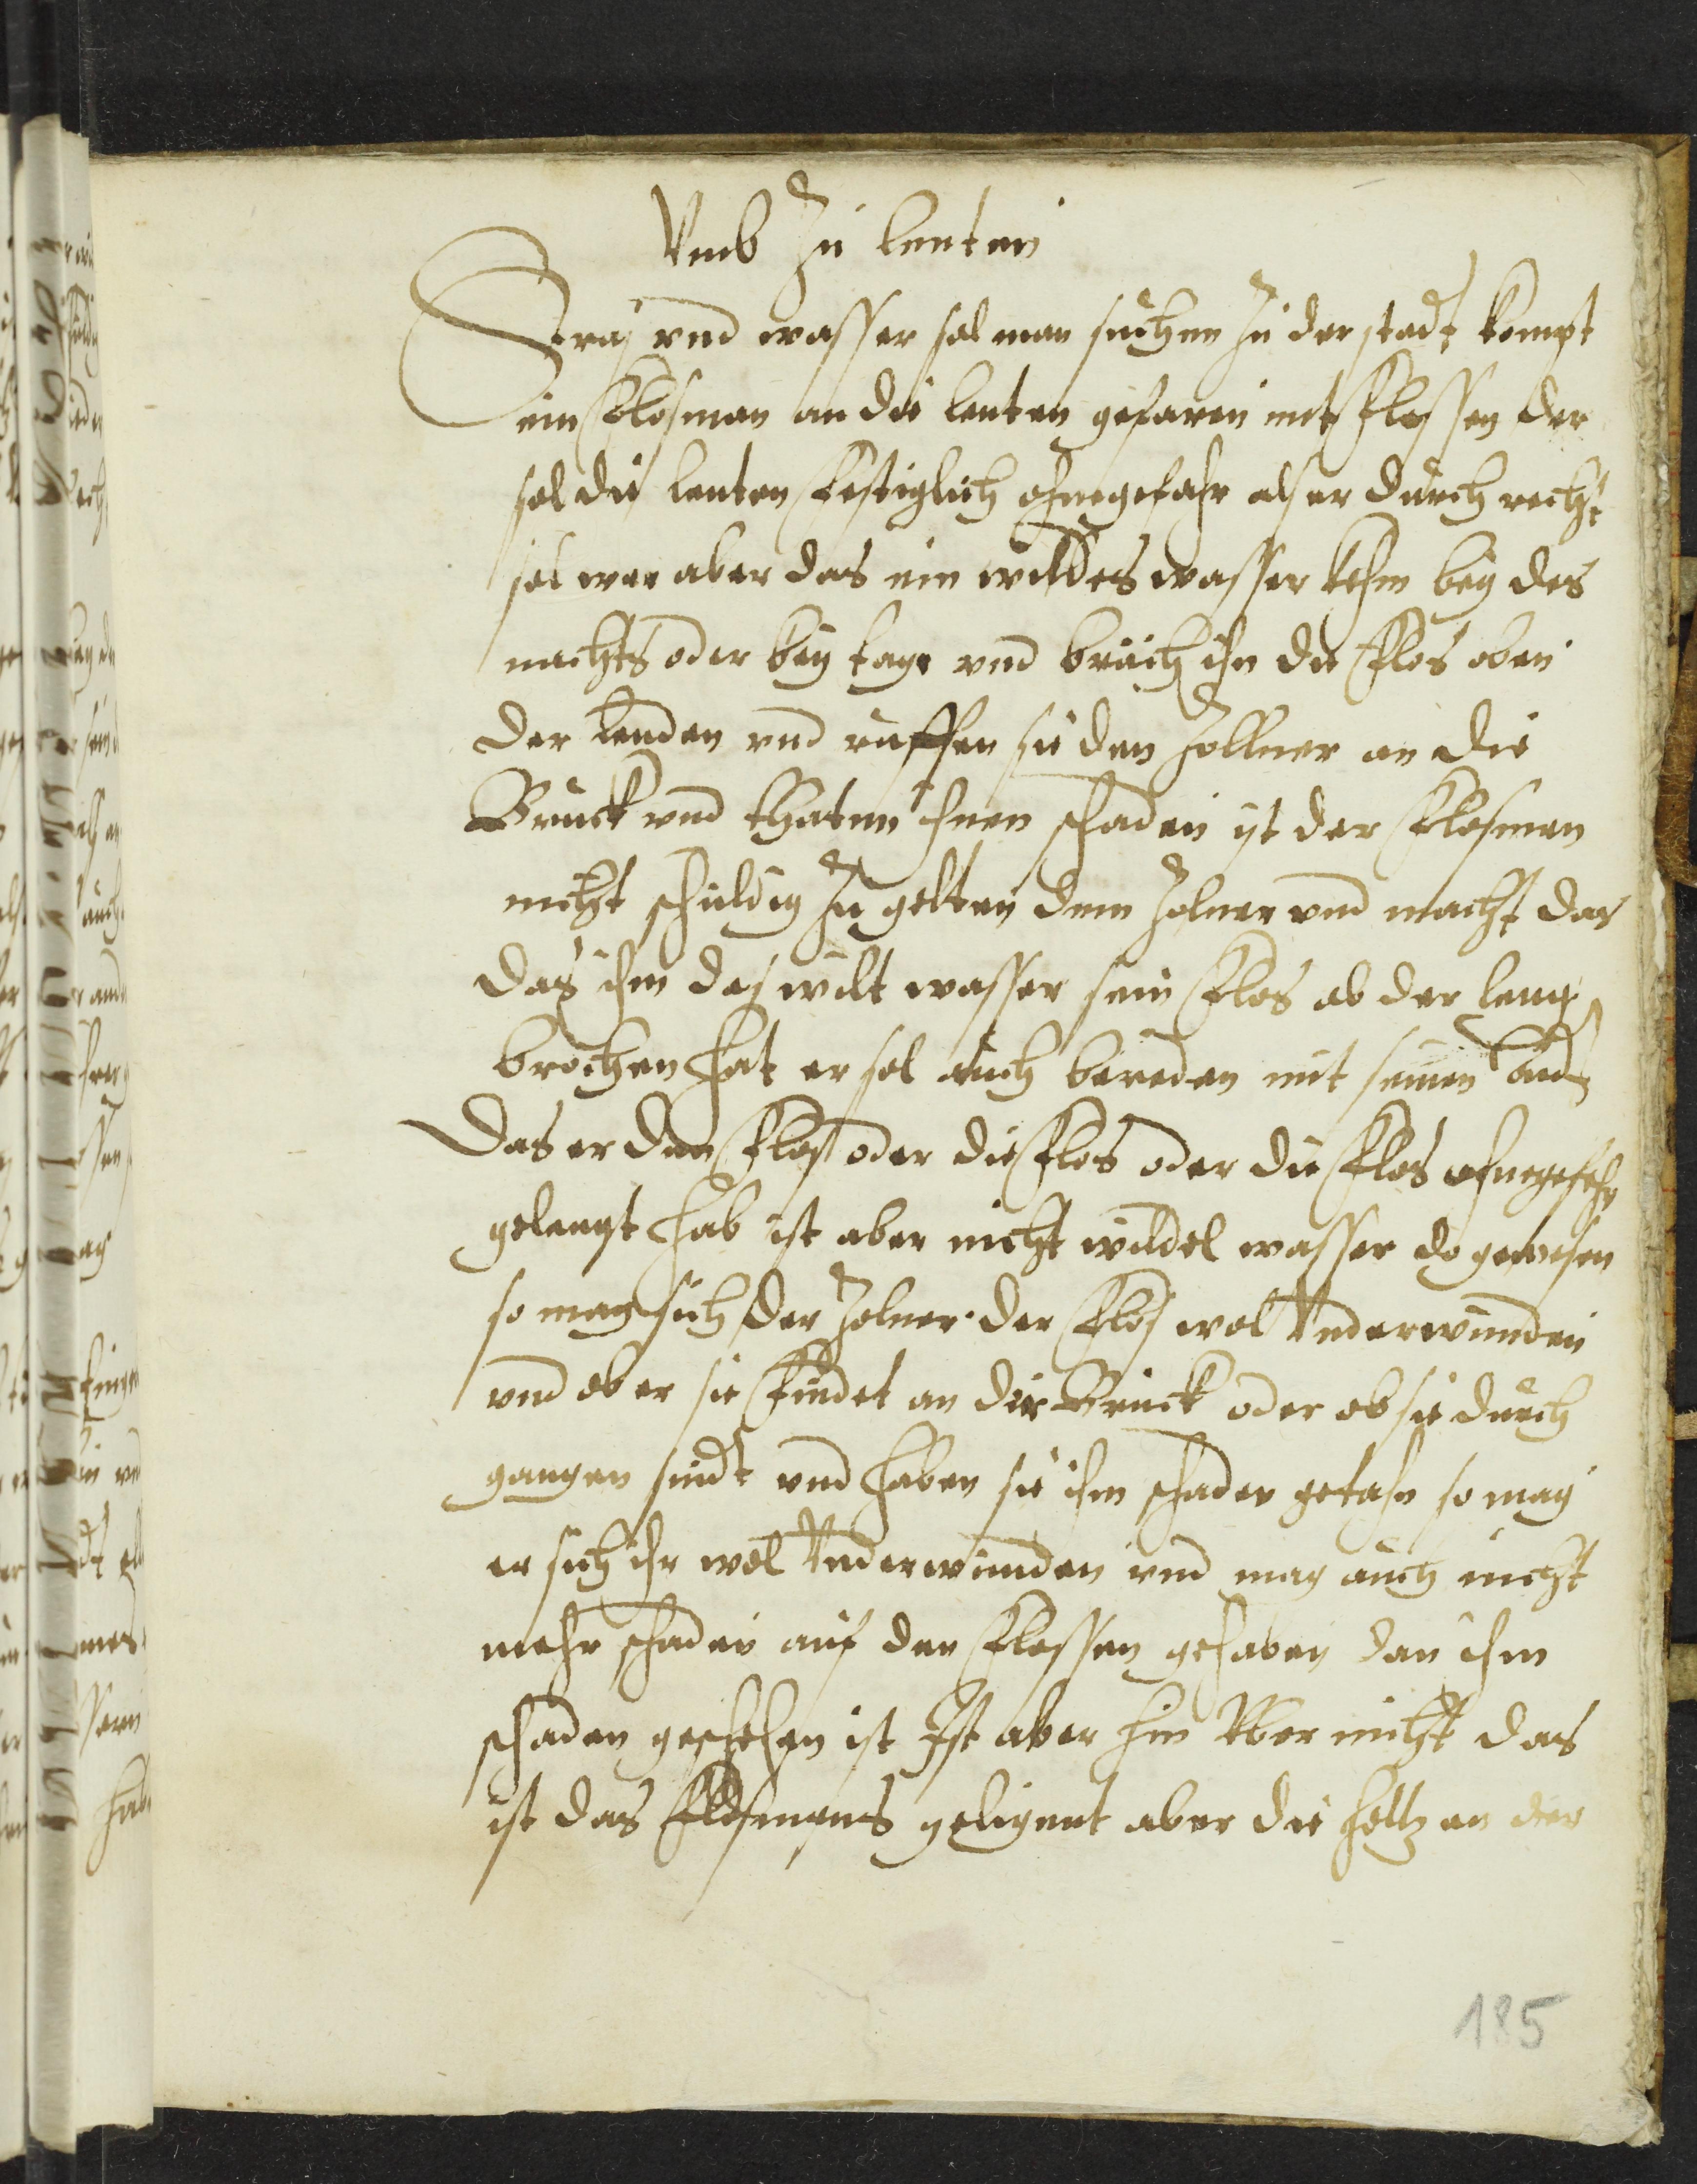 Vmb zu lenten
Gras vnd wasser sol man suchen zu der stadt kompt
ein Flosman an die lenten gefaren mit Flossen der
sol die lenten Festiglich ohngefahr als er durch recht
sol wer aber das ein wildes wasser kehm bey des
nachts oder bey tage vnd brüch ihn die Flos oben
der lenden vnd ruffen sie den zollner an die
Bruck vnd thaten ihnen schaden ist der Flosman
nicht schuldig zu gelten dem zolner vnd macht das
das ihm das wilt wasser sein Flos ab der leng
brochen hat er sol auch bereden mit seinen aid
Das er den Flos oder die Flos oder die Flos ohngefehr
gelengt hab ist aber nicht wildel wasser do gewesen
so mag sich der zolner der Flos wol Vnderwinden
vnd ob er sie Findet an der Bruck oder ob sie durch
gangen sindt vnd haben sie ihm schaden getahn so mag
er sich ihr wol Vnderwinden vnd mag auch nicht
mehr schaden auf den Flossen gehaben dan ihm
schaden geschehen ist Ist aber hin Vber nicht das
ist das Flosmans geligent aber die holtz an der
185